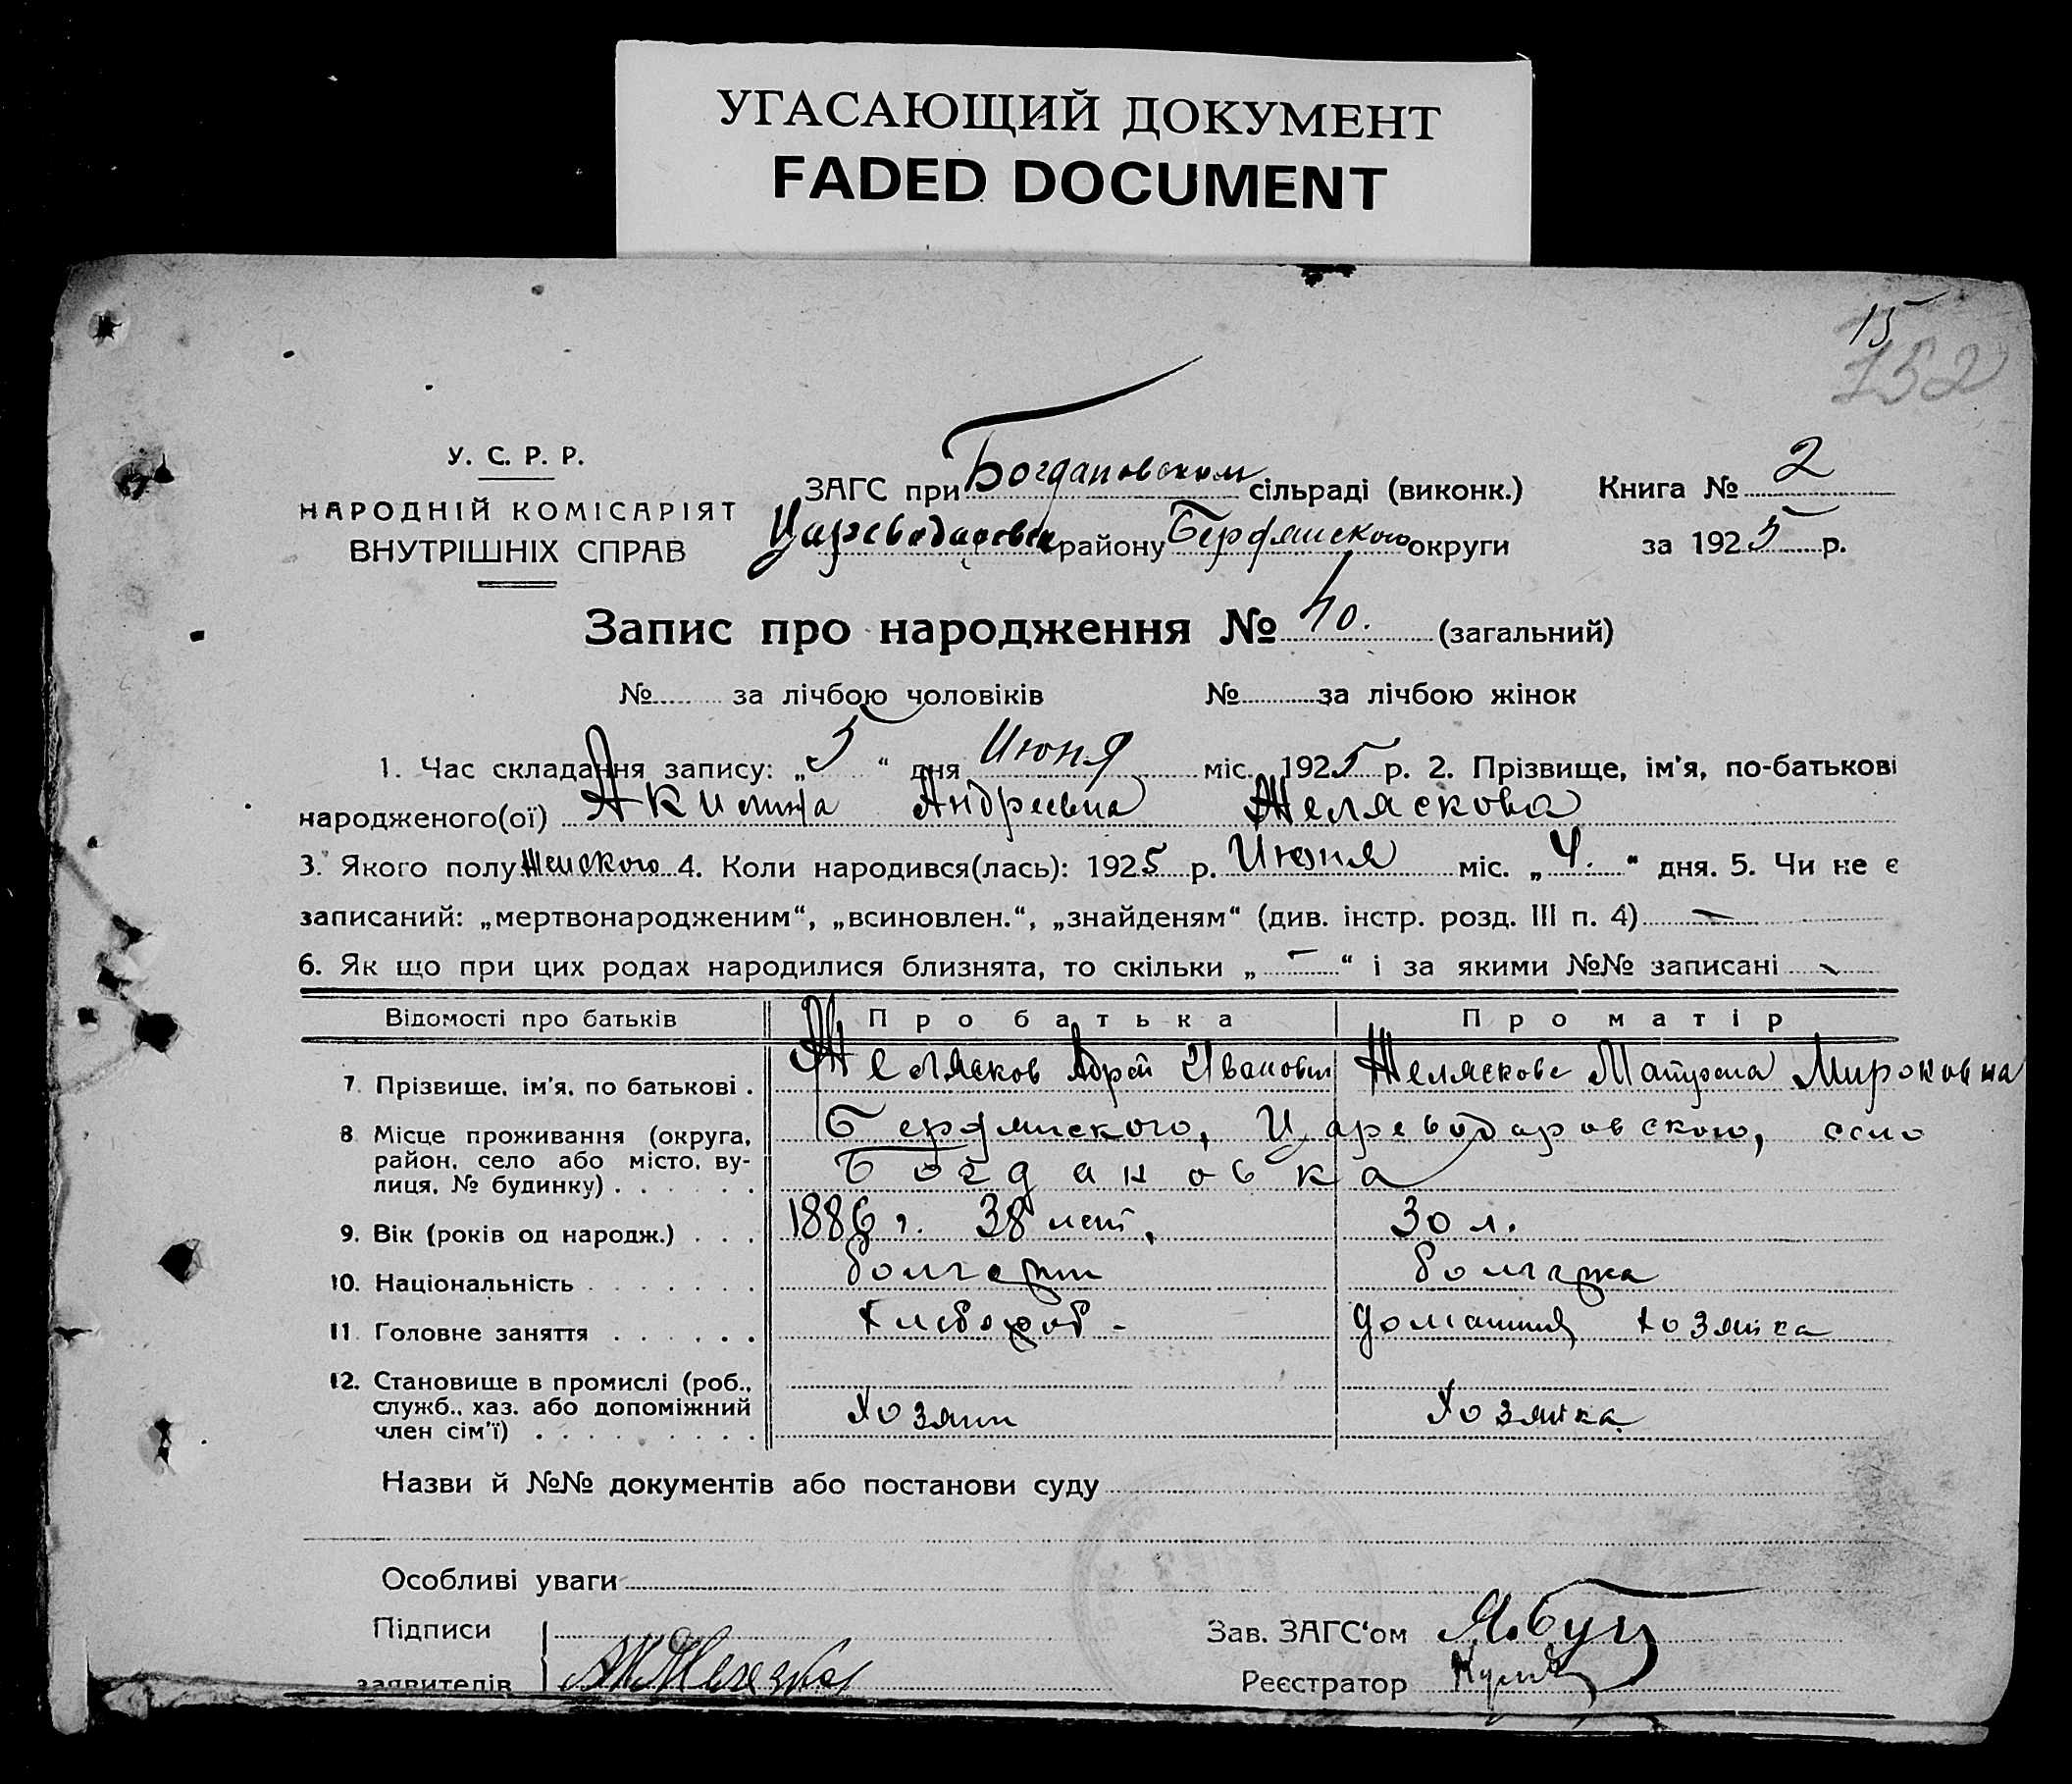 УГАСАЮЩИЙ ДОКУМЕНТ
FADED DOCUMENT
15
152
У. С. Р. Р.
НАРОДНІЙ КОМІСАРІЯТ
ВНУТРІШНІХ СПРАВ
ЗАГС при Богдановском сільраді (виконк.)
району Бердянского округи
Книга № 2
за 1925 р.
Запис про народження № 40. (загальний)
№ за лічбою чоловіків № за лічбою жінок
1. Час складання запису: „5“ дня Июня міс. 1925 р. 2. Прізвище, ім'я, по-батькові
народженого(ої) Акилина Андреевна Желяскова
3. Якого полу Женского 4. Коли народився(лась): 1925 р. Июня міс. „4.“ дня. 5. Чи не є
записаний: „мертвонародженим“, „всиновлен.“, „знайденям“ (див. інстр. розд. III п. 4) —
6. Як що при цих родах народилися близнята, то скільки „—“ і за якими №№ записані —
Відомості про батьків Про батька Про матір
7. Прізвище, ім'я, по батькові . Желясков Иванович Желяскова Матрена Мироновна
8. Місце проживання (округа, Бердянского, Цареводаровского, село
район, село або місто, ву- Богдановка
лиця, № будинку) . . . . . .
9. Вік (років од народж.) . . . 1886 г. 38 лет, 30 л.
10. Національність . . . . . . . болгарин болгарка
11. Головне заняття . . . . . . Хлебороб - домашняя хозяйка
12. Становище в промислі (роб.,
служб., хаз. або допоміжний Хозяин Хозяйка
член сім'ї) . . . . . . . . .
Назви й №№ документів або постанови суду
Особливі уваги
Підписи
заявителів
Зав. ЗАГС'ом
Реєстратор